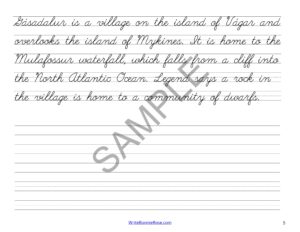 Gásadalur is a village on the island of Vágar and
overlooks the island of Mykines. It is home to the
Mulafossur waterfall, which falls from a cliff into
the North Atlantic Ocean. Legend says a rock in
the village is home to a community of dwarfs.
SAMPLE
WriteBonnieRose.com
5